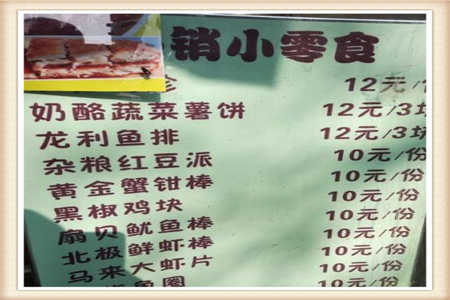 销小零食
12元/份
奶酪蔬菜薯饼 12元/3块
龙利鱼排 12元/3块
杂粮红豆派 10元/份
黄金蟹钳棒 10元/份
黑椒鸡块 10元/份
扇贝鱿鱼棒 10元/份
北极鲜虾棒 10元/份
马来大虾片 10元/份
鱼圈 10元/份
10元/份